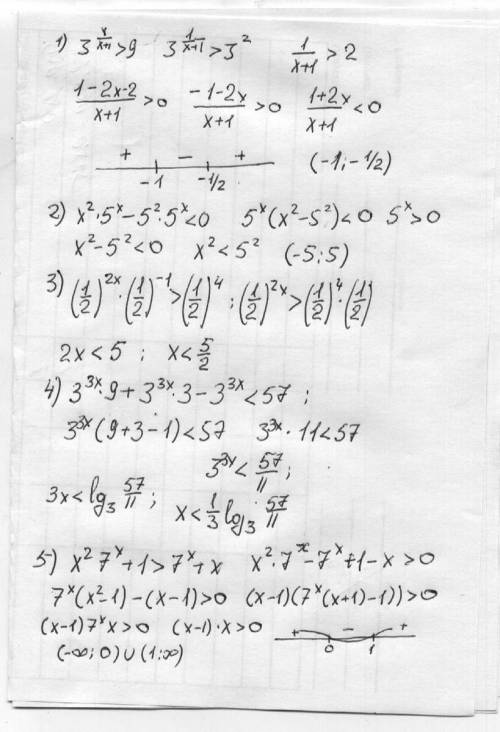 1) 3^(x/(x+1)) > 9   3^(1/(x+1)) > 3^2   1/(x+1) > 2
(1-2x-2)/(x+1) > 0   (-1-2x)/(x+1) > 0   (1+2x)/(x+1) < 0
+ − +   (-1; -1/2)
-1   -1/2
2) x^2·5^x - 5^2·5^x < 0   5^x(x^2-5^2) < 0   5^x > 0
x^2-5^2 < 0   x^2 < 5^2   (-5; 5)
3) (1/2)^(2x)·(1/2)^(-1) > (1/2)^4 ; (1/2)^(2x) > (1/2)^4·(1/2)
2x < 5 ; x < 5/2
4) 3^(3x)·9 + 3^(3x)·3 - 3^(3x) < 57 ;
3^(3x)(9+3-1) < 57   3^(3x)·11 < 57
3^(3x) < 57/11 ;
3x < log_3 57/11 ; x < 1/3 log_3 57/11
5) x^2 7^x + 1 > 7^x + x   x^2·7^x - 7^x + 1 - x > 0
7^x(x^2-1) - (x-1) > 0   (x-1)(7^x(x+1)-1)) > 0
(x-1)7^x x > 0   (x-1)·x > 0   + − +
0   1
(-∞; 0) ∪ (1; ∞)